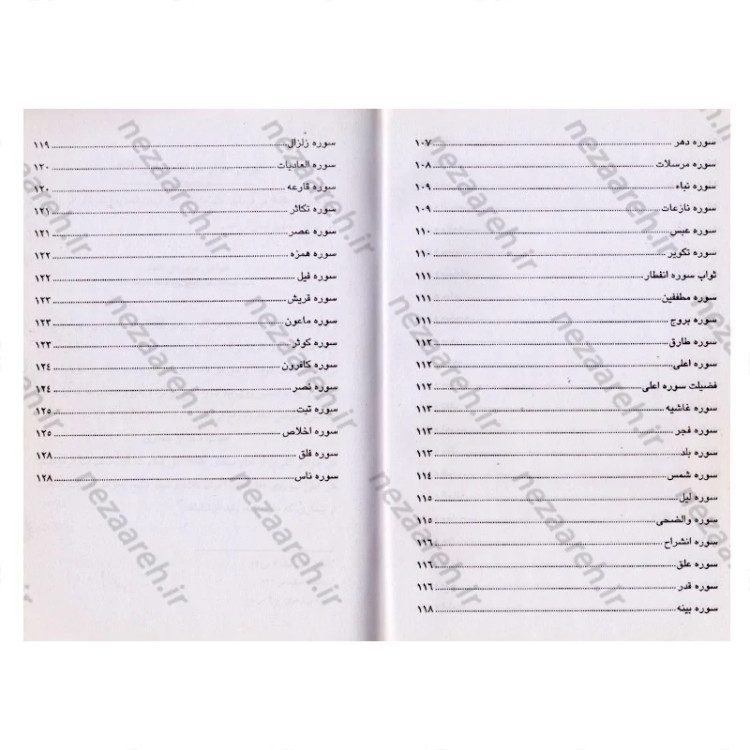 سوره دهر ................ ۱۰۷
سوره مرسلات ................ ۱۰۸
سوره نباء ................ ۱۰۹
سوره نازعات ................ ۱۰۹
سوره عبس ................ ۱۱۰
سوره تکویر ................ ۱۱۰
ثواب سوره انفطار ................ ۱۱۱
سوره مطففین ................ ۱۱۱
سوره بروج ................ ۱۱۱
سوره طارق ................ ۱۱۲
سوره اعلی ................ ۱۱۲
فضیلت سوره اعلی ................ ۱۱۲
سوره غاشیه ................ ۱۱۳
سوره فجر ................ ۱۱۳
سوره بلد ................ ۱۱۳
سوره شمس ................ ۱۱۴
سوره لیل ................ ۱۱۵
سوره والضحی ................ ۱۱۵
سوره انشراح ................ ۱۱۶
سوره علق ................ ۱۱۶
سوره قدر ................ ۱۱۶
سوره بینه ................ ۱۱۸
سوره زلزال ................ ۱۱۹
سوره العادیات ................ ۱۲۰
سوره قارعه ................ ۱۲۰
سوره تکاثر ................ ۱۲۱
سوره عصر ................ ۱۲۱
سوره همزه ................ ۱۲۲
سوره فیل ................ ۱۲۲
سوره قریش ................ ۱۲۳
سوره ماعون ................ ۱۲۳
سوره کوثر ................ ۱۲۳
سوره کافرون ................ ۱۲۴
سوره نصر ................ ۱۲۴
سوره تبت ................ ۱۲۵
سوره اخلاص ................ ۱۲۵
سوره فلق ................ ۱۲۸
سوره ناس ................ ۱۲۸
nezaareh.ir